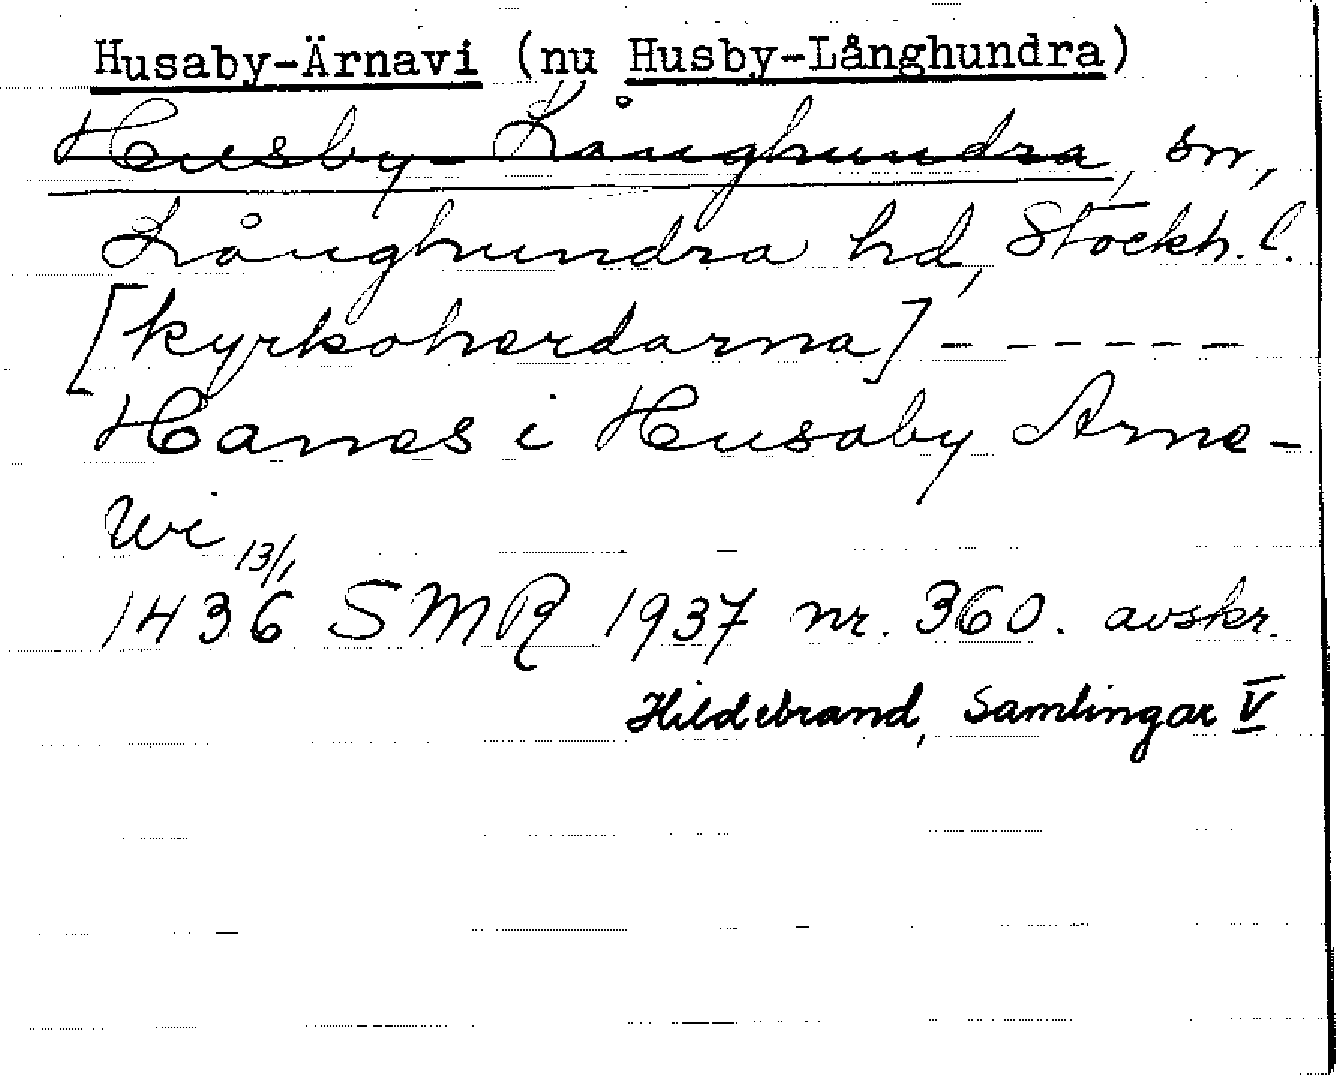 Husaby-Ärnavi (nu Husby-Långhundra)
Husby-Långhundra, sn,
Långhundra hd, Stockh. l.
[kyrkoherdarna] - - - - - -
Hanes i Husaby Arne-
wi 13/1
1436 SMR 1937 nr. 360. avskr.
Hildebrand, Samlingar V